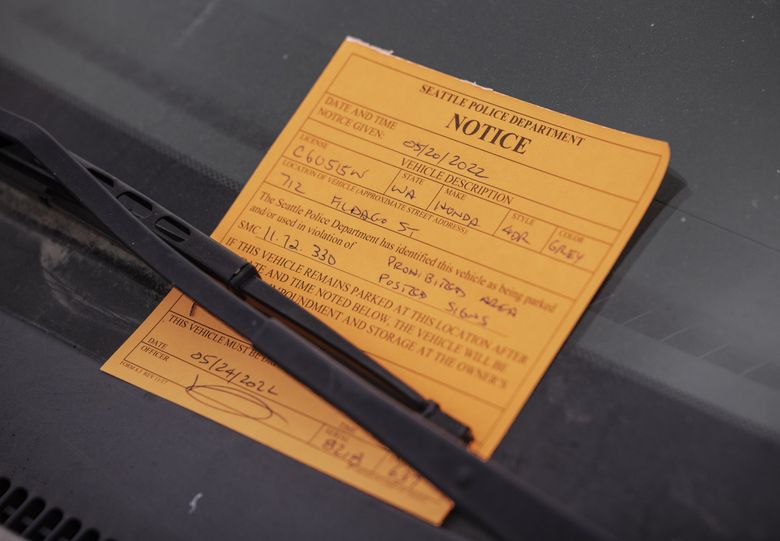 SEATTLE POLICE DEPARTMENT
NOTICE
DATE AND TIME
NOTICE GIVEN: 05/20/2022
VEHICLE DESCRIPTION
LICENSE STATE MAKE STYLE COLOR
C60515W WA HONDA 4DR GREY
LOCATION OF VEHICLE (APPROXIMATE STREET ADDRESS)
712 FILDAGO ST
The Seattle Police Department has identified this vehicle as being parked
and/or used in violation of PROHIBITED AREA
SMC 11.72.330 POSTED SIGNS
IF THIS VEHICLE REMAINS PARKED AT THIS LOCATION AFTER
DATE AND TIME NOTED BELOW, THE VEHICLE WILL BE
IMPOUNDMENT AND STORAGE AT THE OWNER'S
THIS VEHICLE MUST BE
DATE 05/24/2022
OFFICER SERIAL